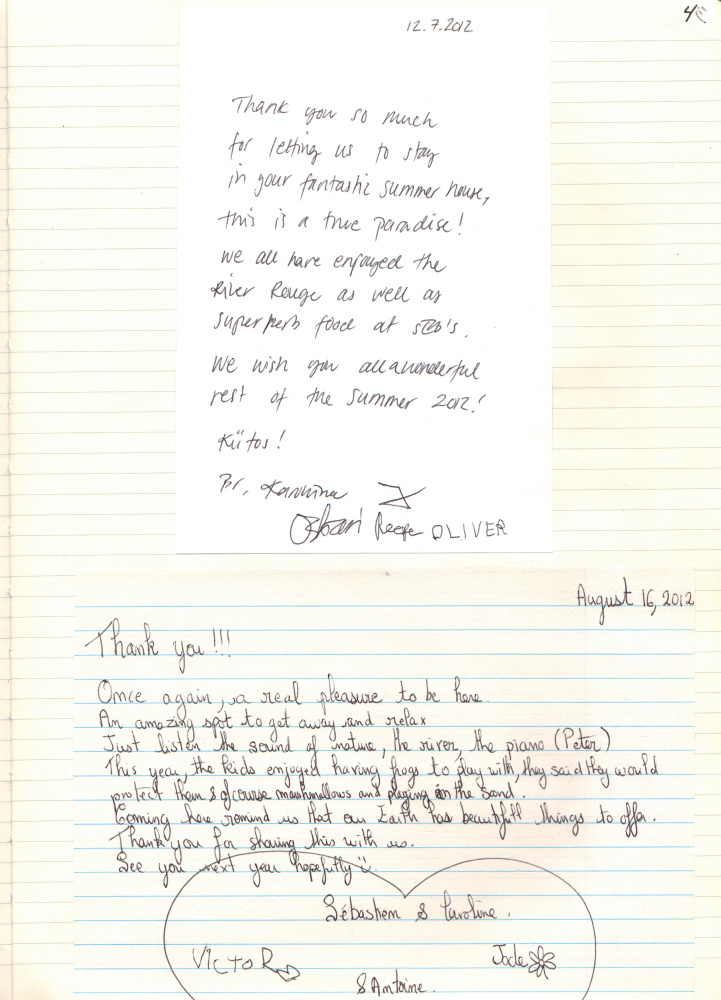 4
12.7.2012
Thank you so much
for letting us to stay
in your fantastic summer house,
this is a true paradise!
We all have enjoyed the
River Rouge as well as
superperb food at
We wish you all a wonderful
rest of the summer 2012!
Kiitos!
Br. Karoliina
OLIVER
August 16, 2012
Thank you!!!
Once again, a real pleasure to be here.
An amazing spot to get away and relax
Just listen the sound of nature, the river, the piano (Peter)
This year, the kids enjoyed having frogs to play with, they said they would
protect them & of course marshmallows and playing in the sand.
Coming here remind us that our Earth has beautifull things to offer.
Thank you for sharing this with us.
See you next year hopefully
Sébastien & Caroline.
VICTOR
Jade
& Antoine.